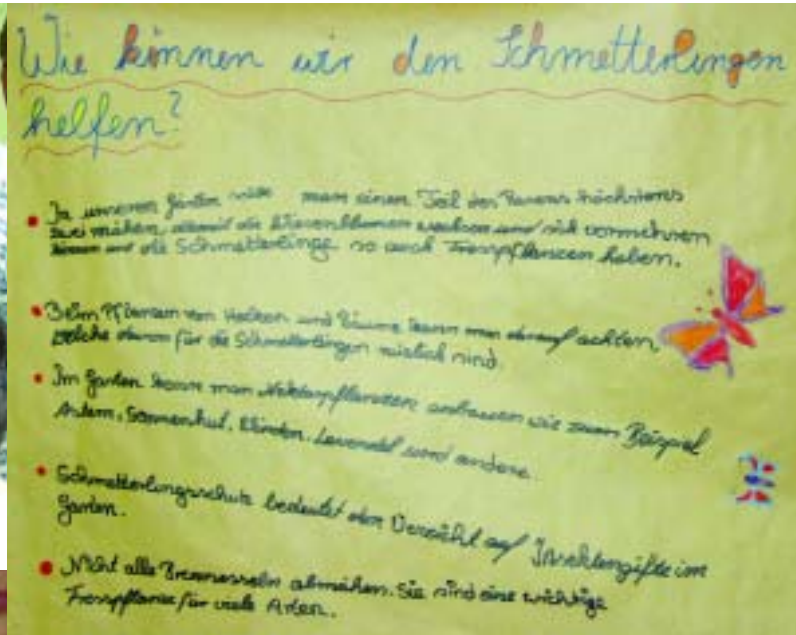 Wie können wir den Schmetterlingen
helfen?
In unseren Gärten man einen Teil des Rasens höchstens
zwei mähen, damit die Wiesenblumen wachsen und sich vermehren
können und die Schmetterlinge so auch Fresspflanzen haben.
Beim Pflanzen von Hecken und Bäume kann man darauf achten,
welche davon für die Schmetterlingen nützlich sind.
Im Garten kann man Nektarpflanzen anbauen wie zum Beispiel
Astern, Sonnenhut, Lavendel und andere.
Schmetterlingsschutz bedeutet den Verzicht auf Insektengifte im
Garten.
Nicht alle Brennesseln abmähen. Sie sind eine wichtige
Fresspflanze für viele Arten.